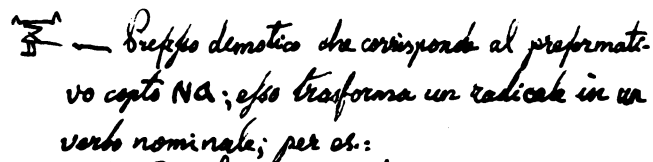 — Prefisso demotico che corrisponde al preformati-
vo copto ΝΑ; esso trasforma un radicale in un
verbo nominale; per es.: